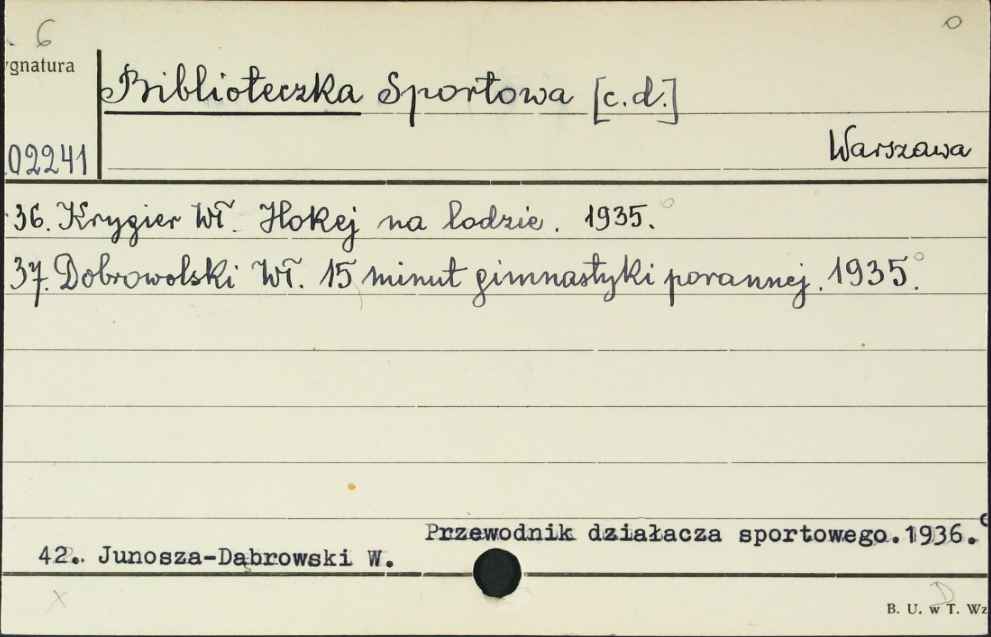 6
ygnatura
Biblioteczka Sportowa [c.d.]
02241
Warszawa
36. Krygier Wł. Hokej na lodzie. 1935.
37. Dobrowolski Wł. 15 minut gimnastyki porannej. 1935.
Przewodnik działacza sportowego.1936.
42. Junosza-Dąbrowski W.
B. U. w T. Wz